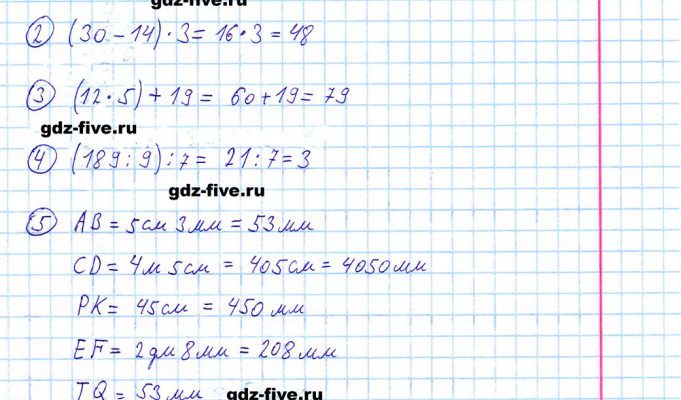 gdz-five.ru
2 (30 - 14) · 3 = 16 · 3 = 48
3 (12 · 5) + 19 = 60 + 19 = 79
gdz-five.ru
4 (189 : 9) : 7 = 21 : 7 = 3
gdz-five.ru
5 AB = 5см 3мм = 53мм
CD = 4м 5см = 405см = 4050мм
PK = 45см = 450мм
EF = 2дм 8мм = 208мм
TQ = 53мм gdz-five.ru